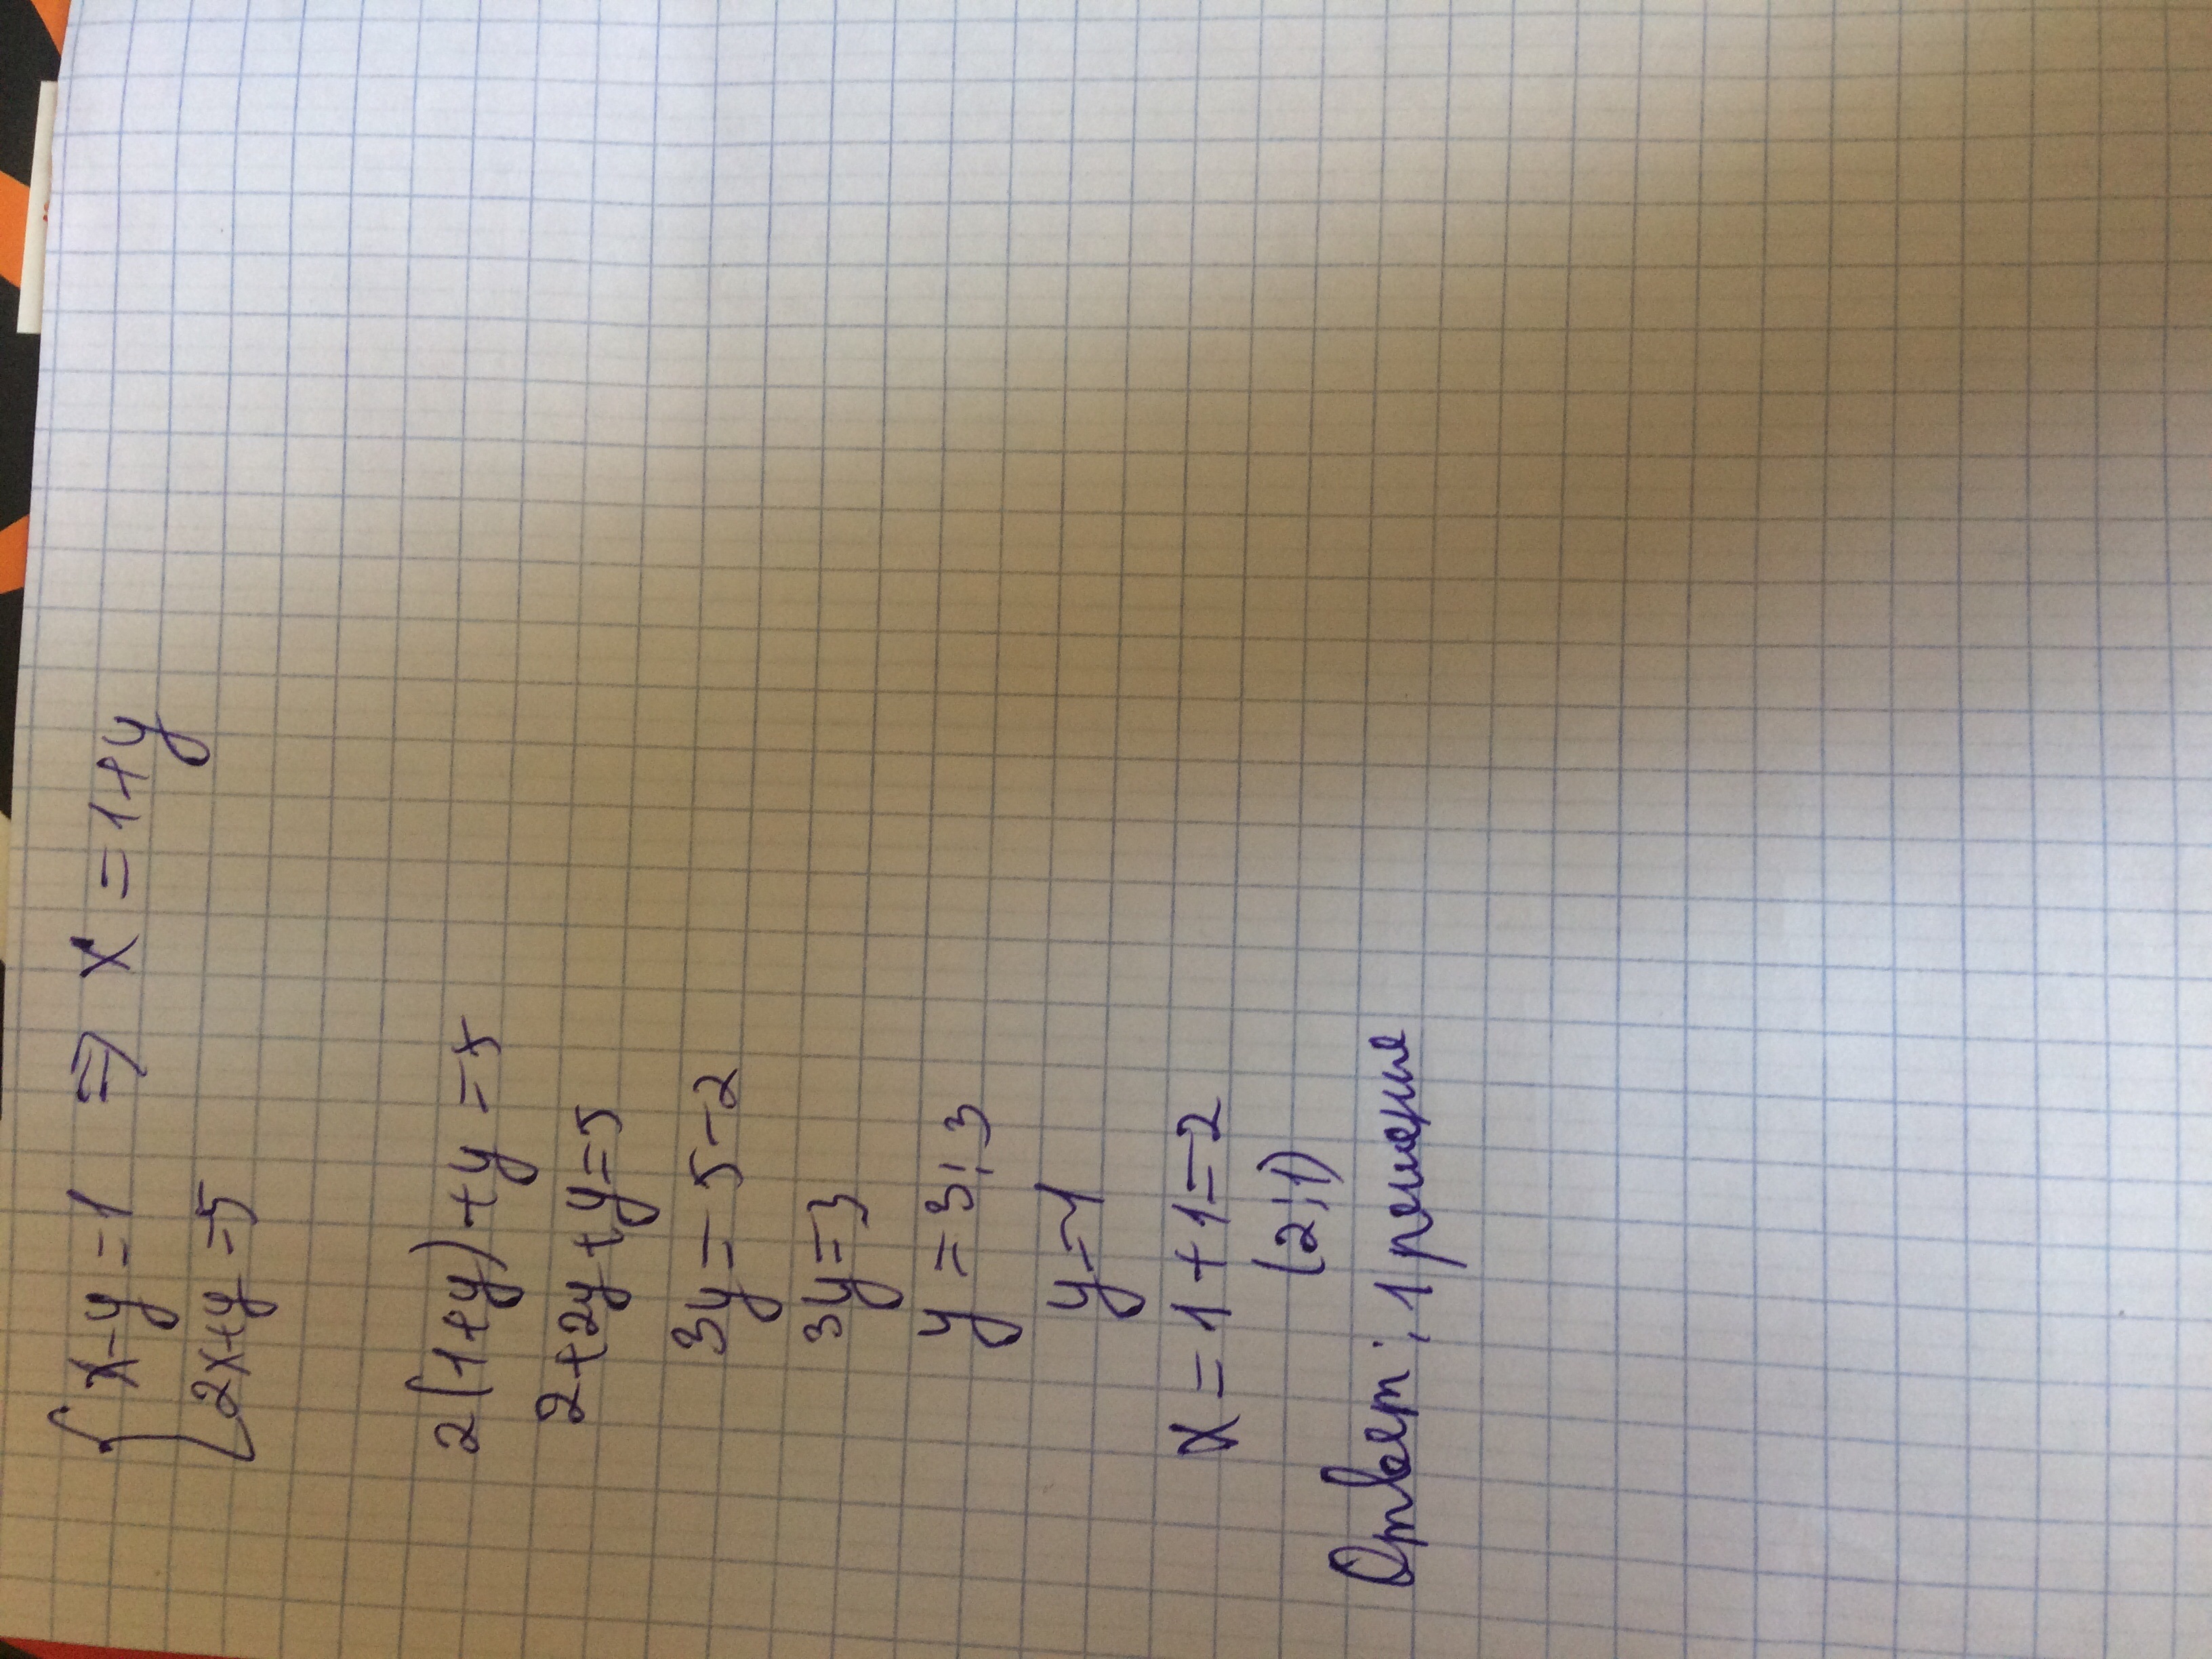 { x-y=1 ⇒ x=1+y
2x+y=5
2(1+y)+y=5
2+2y+y=5
3y=5-2
3y=3
y=3:3
y=1
x=1+1=2
(2;1)
Ответ: 1 решение